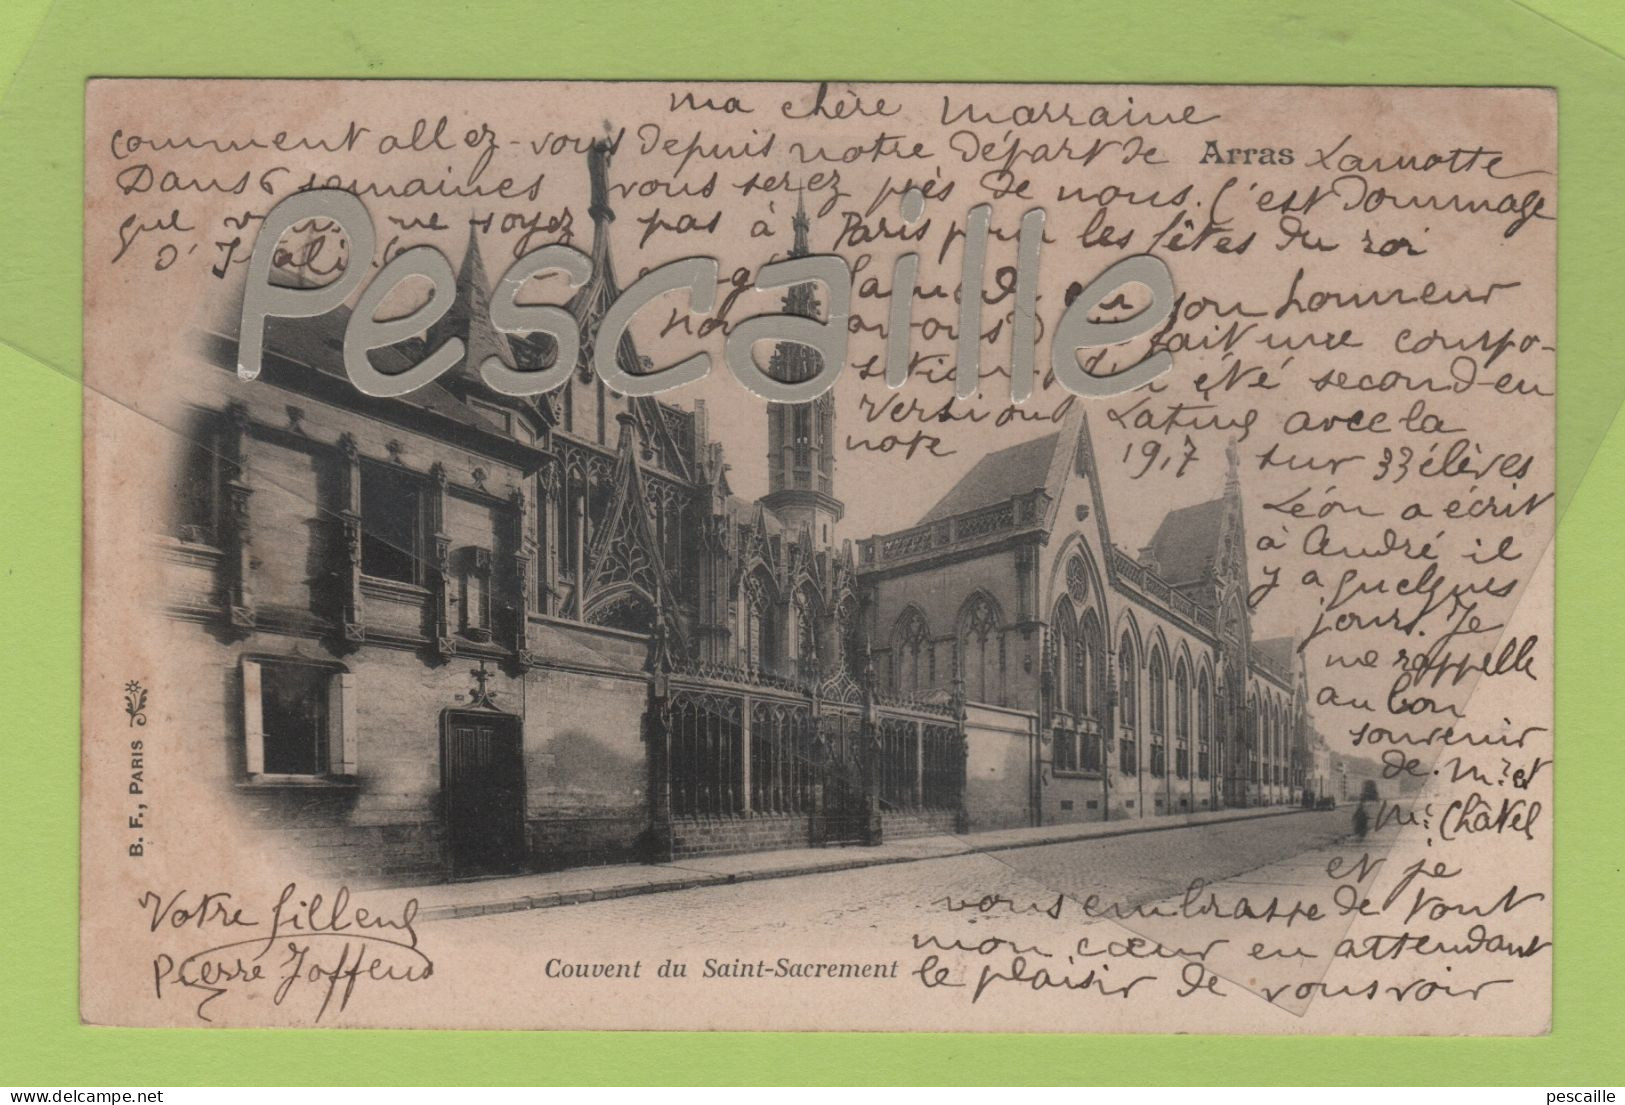 ma chère Marraine
comment allez-vous depuis notre départ de Lamotte
Arras
Dans 6 semaines vous serez près de nous. C'est Dommage
que vous ne soyez pas à Paris pour les fêtes du roi
d'Italie
Pescaille
en son honneur
Nous avons fait une compo-
sition j'ai été second en
version Latine avec la
note 19,7 sur 33 élèves
Léon a écrit
à André il
y a quelques
jours. Je
me rappelle
au bon
souvenir
de Mr et
Mr Châtel
et je
vous embrasse de tout
mon cœur en attendant
le plaisir de vous voir
Votre filleul
Pierre
B. F., PARIS
Couvent du Saint-Sacrement
delcampe.net
pescaille